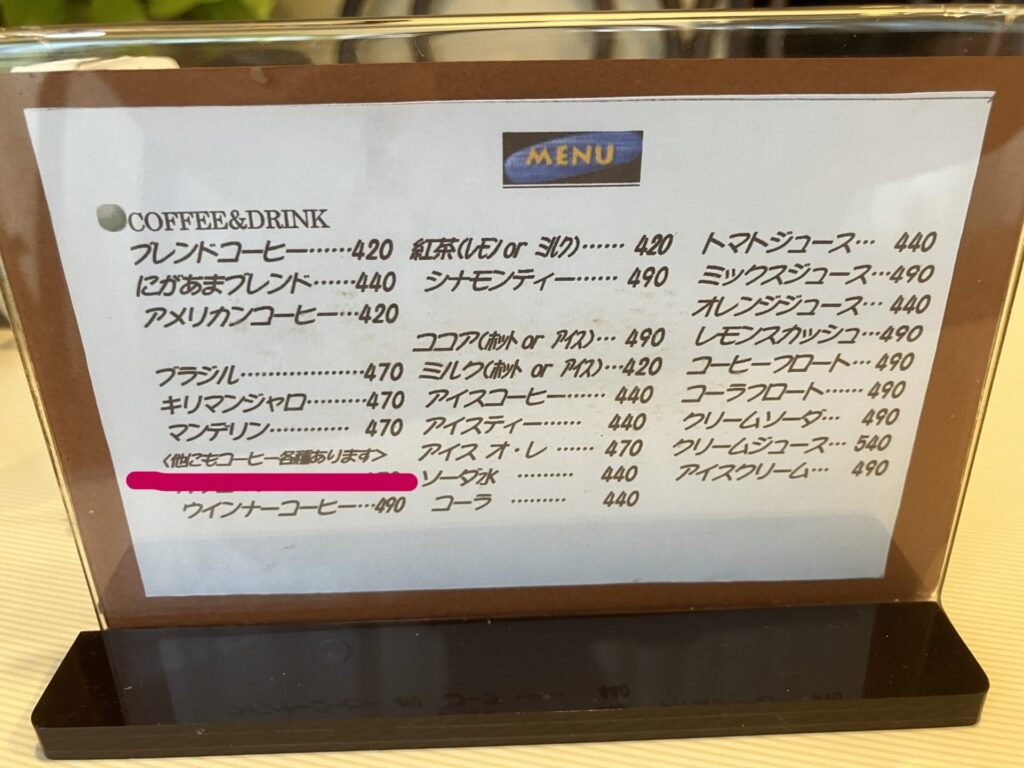 MENU
COFFEE&DRINK
ブレンドコーヒー……420
にがあまブレンド……440
アメリカンコーヒー…420
ブラジル………………470
キリマンジャロ………470
マンデリン………… 470
〈他にもコーヒー各種あります〉
ウインナーコーヒー…490
紅茶(レモン or ミルク)…… 420
シナモンティー…… 490
ココア(ホット or アイス)… 490
ミルク(ホット or アイス)…420
アイスコーヒー…… 440
アイスティー…… 440
アイス オ・レ …… 470
ソーダ水 ……… 440
コーラ ……… 440
トマトジュース… 440
ミックスジュース…490
オレンジジュース… 440
レモンスカッシュ…490
コーヒーフロート…490
コーラフロート……490
クリームソーダ… 490
クリームジュース… 540
アイスクリーム… 490